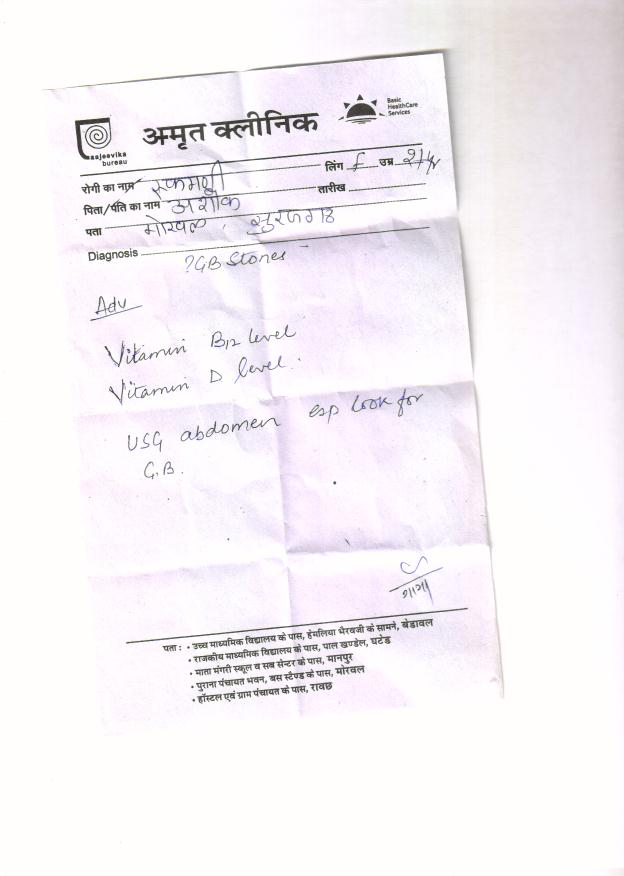 aajeevika
bureau
अमृत क्लीनिक
Basic
HealthCare
Services
रोगी का नाम रुकमणी लिंग F उम्र
पिता/पति का नाम अशोक तारीख
पता मोरवल, सुरजगढ
Diagnosis ?GB Stones
Adv
Vitamin B12 level
Vitamin D level.
USG abdomen esp look for
G.B.
पता : • उच्च माध्यमिक विद्यालय के पास, हेमलिया भैरवजी के सामने, बेडावल
• राजकीय माध्यमिक विद्यालय के पास, पाल खण्डेल, घटेड
• माता मंगरी स्कूल व सब सेन्टर के पास, मानपुर
• पुराना पंचायत भवन, बस स्टैण्ड के पास, मोरवल
• हॉस्टल एवं ग्राम पंचायत के पास, रावछ